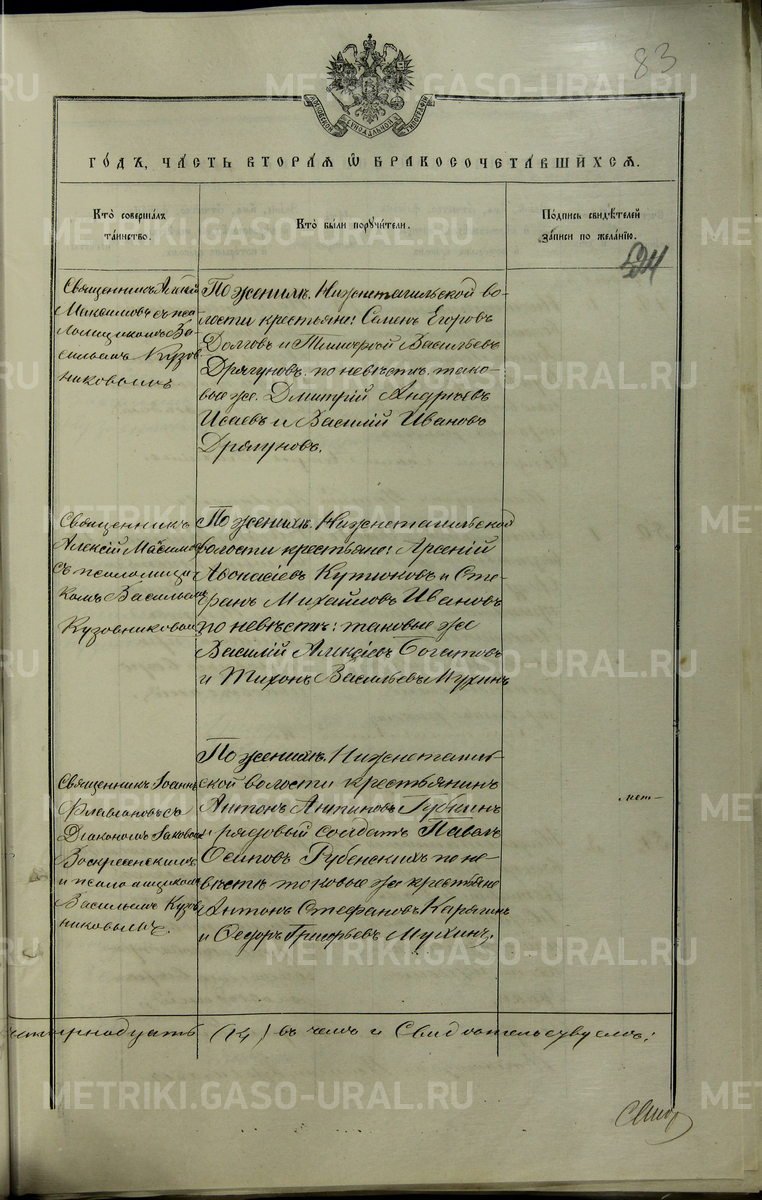 83
МОСКОВСКОЙ СѴНОДАЛЬНОЙ ТИПОГРАФІИ
ГОДЪ, ЧАСТЬ ВТОРАЯ Ѡ БРАКОСОЧЕТАВШИХСЯ.
Кто совершалъ
таинство.
Кто были поручители.
Подпись свидѣтелей
записи по желанію.
Священникъ Алексій
Максимовъ съ пса-
ломщикомъ Ва-
сильемъ Кузов-
никовымъ
По женихѣ. Нижнетагильской во-
лости крестьяне: Семенъ Егоровъ
Долговъ и Тимоѳей Васильевъ
Дрягуновъ. по невѣстѣ. тако-
вые же. Дмитрій Андреевъ
Исаевъ и Василій Ивановъ
Дрягуновъ.
Священникъ
Алексій Максимов
съ псаломщи-
комъ Васильемъ
Кузовниковым
По женихѣ. Нижнетагильской
волости крестьяне: Арсеній
Аѳонасіевъ Кутюковъ и Сте-
фанъ Михайловъ Ивановъ
по невѣстѣ: таковые же
Василій Алексіевъ Богатовъ
и Тихонъ Васильевъ Мухинъ
Священникъ Іоаннъ
Флавіановъ съ
Діакономъ Іаковомъ
Воскресенскимъ
и псаломщикомъ
Васильемъ Кузов-
никовымъ.
По женихѣ. Нижнетагиль-
ской волости крестьянинъ
Антонъ Антиповъ Губкинъ
и рядовый солдатъ Павелъ
Осиповъ Рубенскихъ по не-
вѣстѣ таковые же крестьяне
Антонъ Стефановъ Карягинъ
и Ѳедоръ Григорьевъ Мухинъ.
четырнадцать (14) въ чемъ и Свидѣтельствуемъ:
METRIKI.GASO-URAL.RU